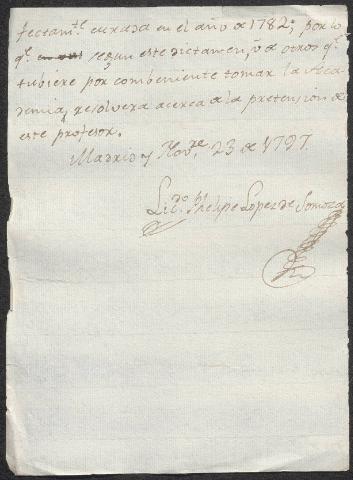 fectam.te curada en el año de 1782; por lo
q.e segun este dictamen, ú de otros q.e
tubiere por combeniente tomar la Aca-
demia, resolvera acerca de la pretension de
este profesor.
Madrid y Nov.re 23 de 1797.
Lic.do D.n Phelipe Lopez de Somoza